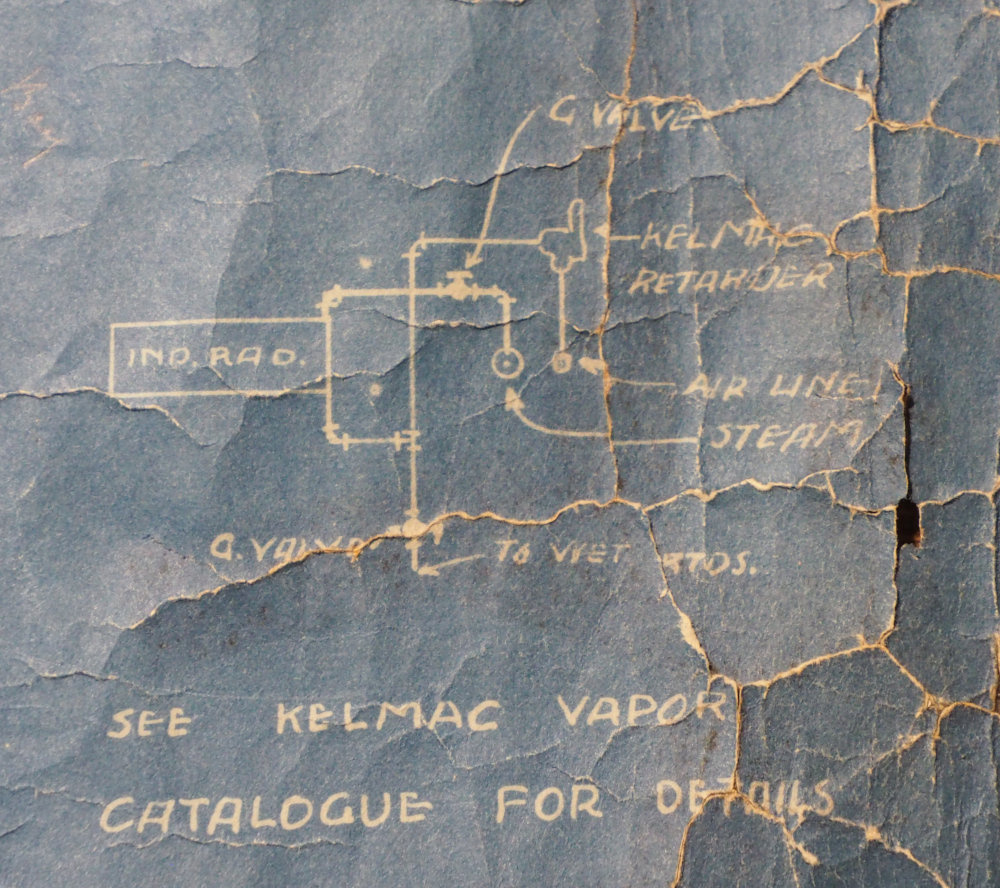 G. VALVE.
KELMAC
RETARDER
IND. RAD.
AIR LINE
STEAM
G. VALVE
TO WET RTDS.
SEE KELMAC VAPOR
CATALOGUE FOR DETAILS